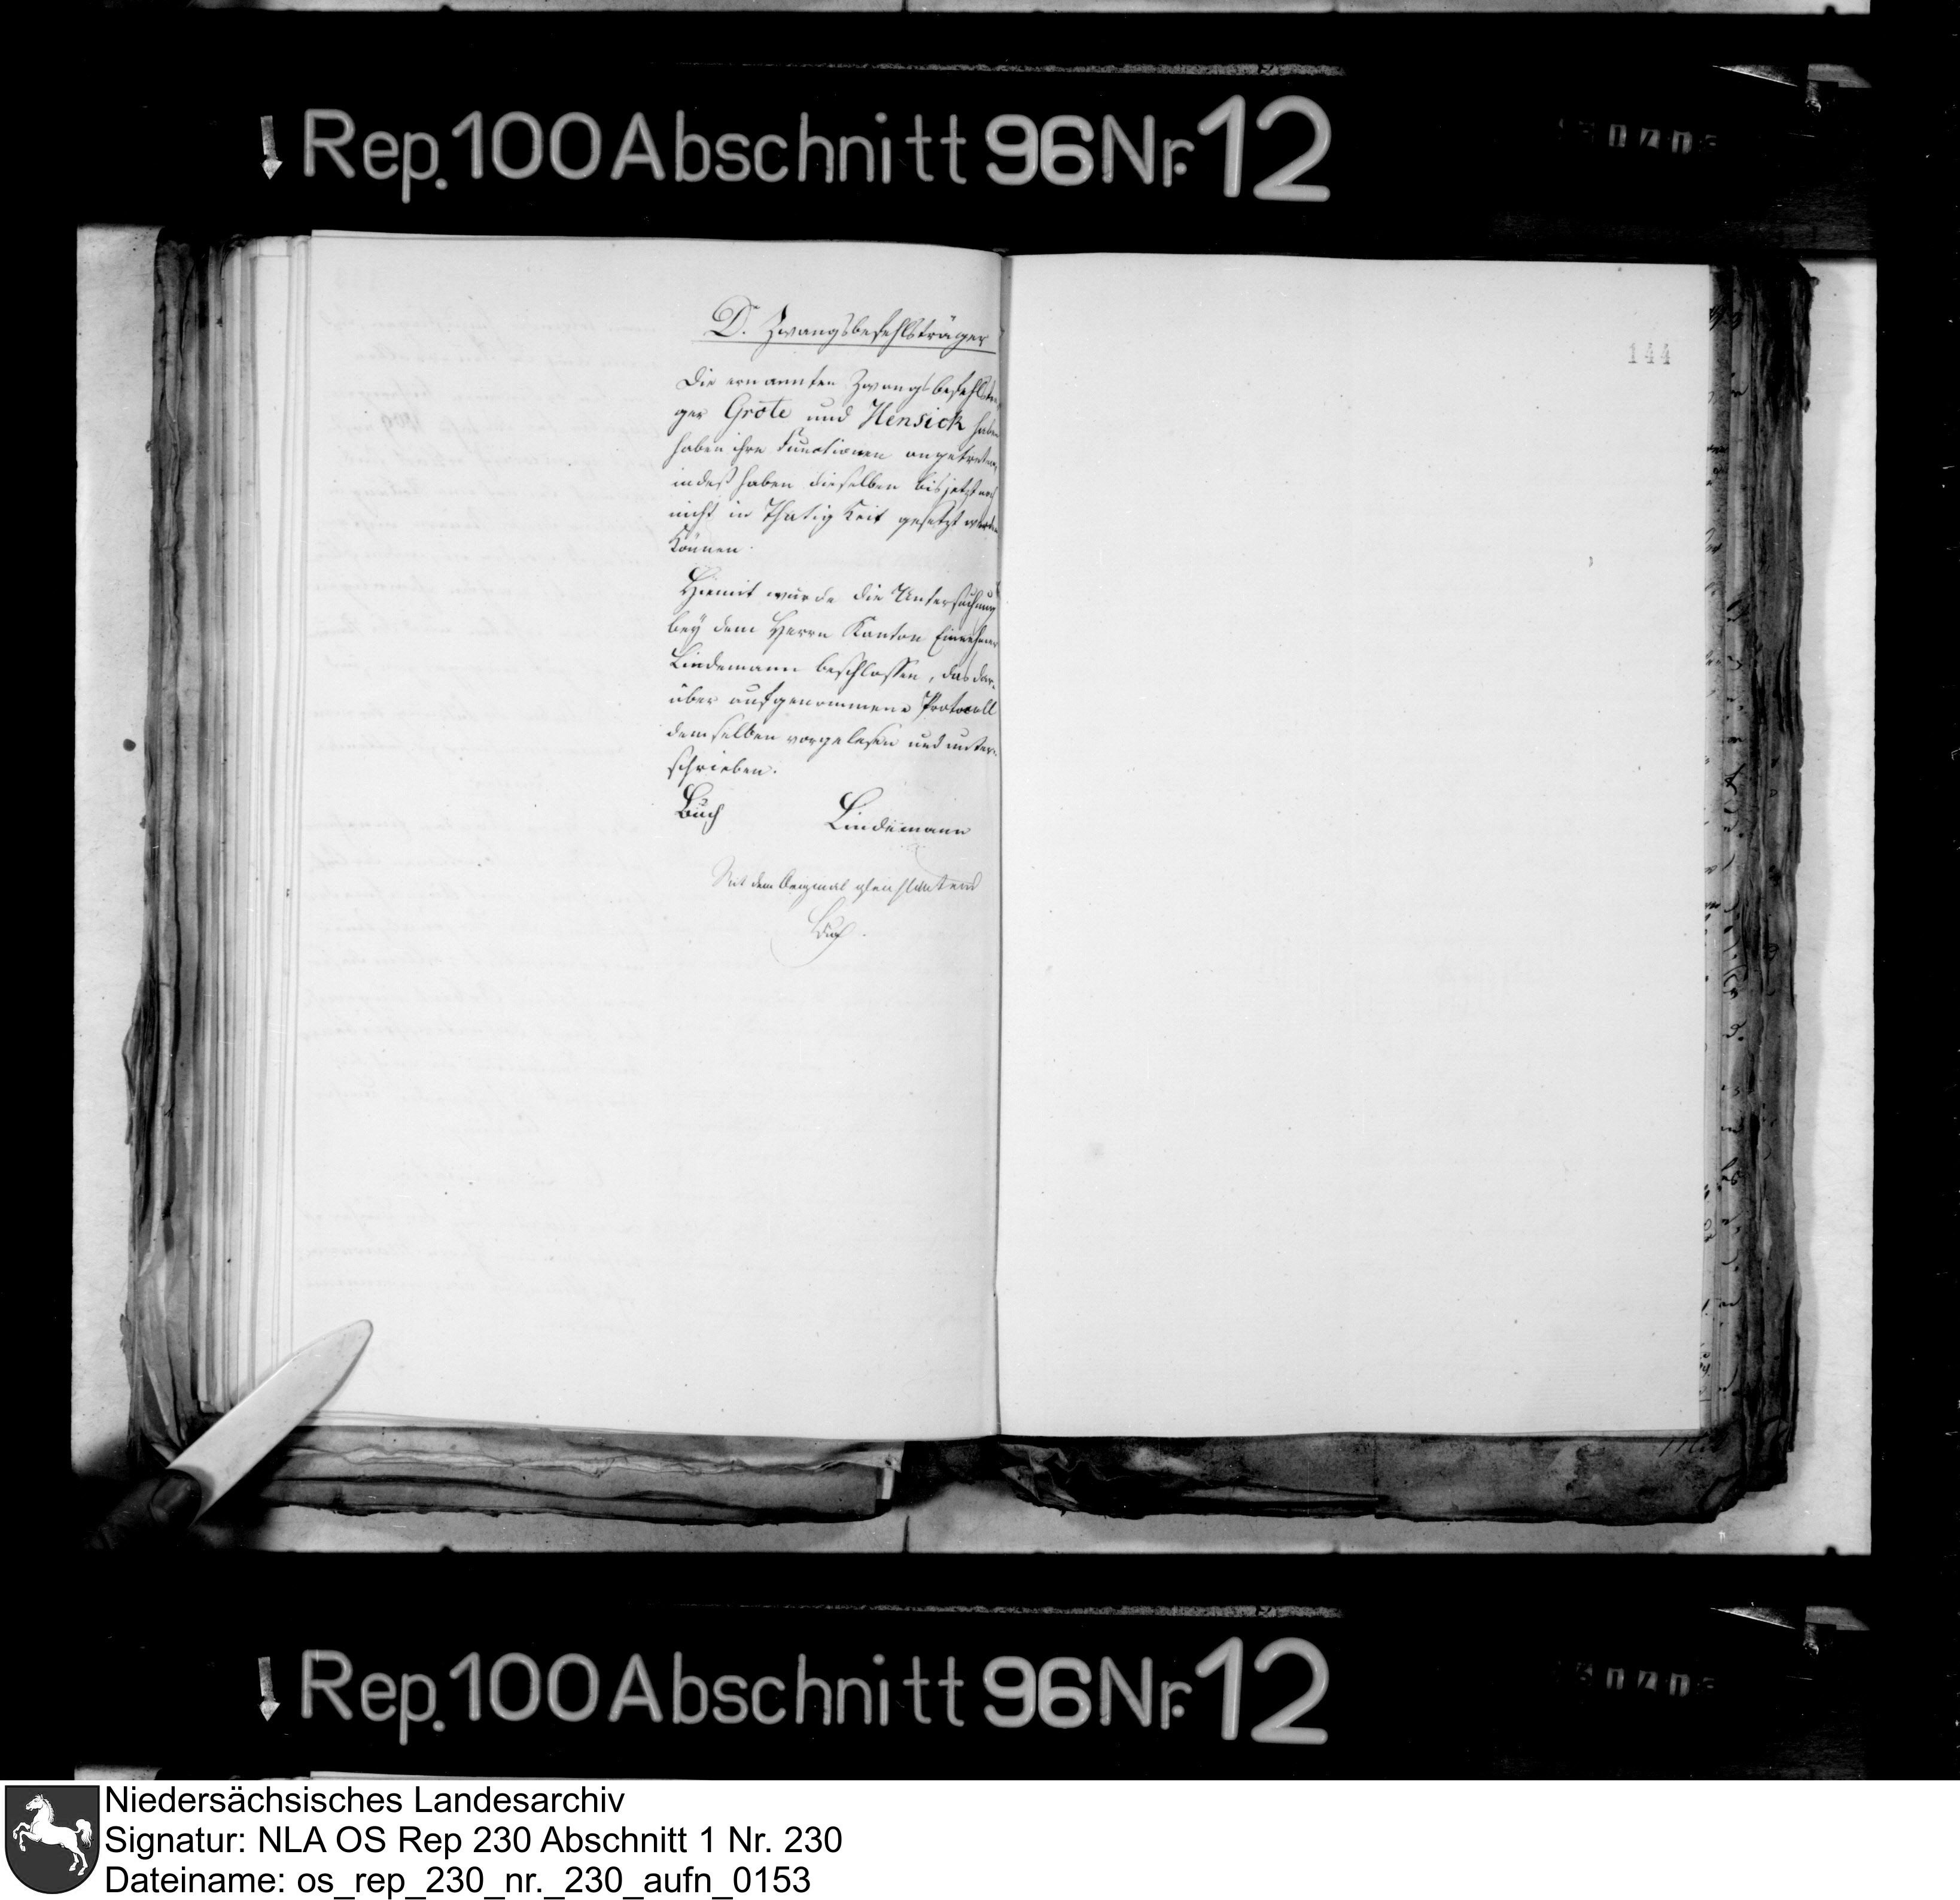 Rep. 100 Abschnitt 96 Nr. 12
D. Zwangsbefehlsträger
Die ernannten Zwangsbefehlsträ
ger Grote und Hensick haben
haben ihre Functionen angetreten,
indeß haben dieselben bis jetzt noch
nicht in Thätigkeit gesetzt werden
können.
Hiemit wurde die Untersuchung
bey dem Herrn Kanton Einnehmer
Lindemann beschlossen, das dar-
über aufgenommene Protocoll
demselben vorgelesen und unter-
schrieben.
Buch Lindemann
Mit dem Original gleichlautend
Buch.
144
Rep. 100 Abschnitt 96 Nr. 12
Niedersächsisches Landesarchiv
Signatur: NLA OS Rep 230 Abschnitt 1 Nr. 230
Dateiname: os_rep_230_nr._230_aufn_0153